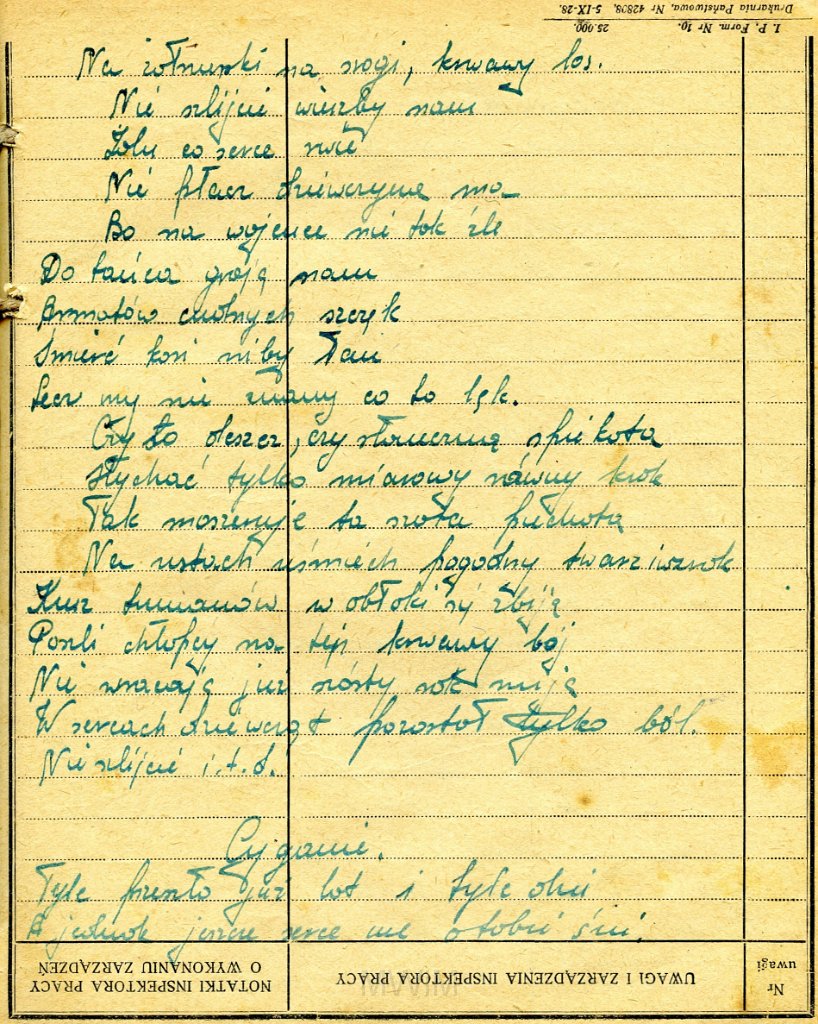 I. P. Form. Nr 10. 25.000.
Drukarnia Państwowa, Nr 42808. 5-IX-28.
Na żołnierski na srogi, krwawy los.
Nie szlijcie wieszby nam
Żalu co serce rwie
Nie płacz dziewczyne ma
Bo na wojence nie tak źle
Do tańca grają nam
Armatów cudnych szczęk
Śmierć kosi niby łan
Lecz my nie znamy co to lęk.
Czy to deszcz, czy słoneczną spiekotą
Słychać tylko miarowy równy krok
Tak maszeruje ta szara piechota
Na ustach uśmiech pogodny twarz i wzrok
Kurz tumanów w obłoki się zbiją
Poszli chłopcy na ten krwawy bój
Nie wracają już szósty rok mija
W sercach dziewcząt pozostał tylko ból.
Nie szlijcie i.t.d.
Cyganie.
Tyle przeszło już lat i tyle dni
A jednak jeszcze serce me o tobie śni.
NOTATKI INSPEKTORA PRACY O WYKONANIU ZARZĄDZEŃ
UWAGI I ZARZĄDZENIA INSPEKTORA PRACY
Nr uwagi